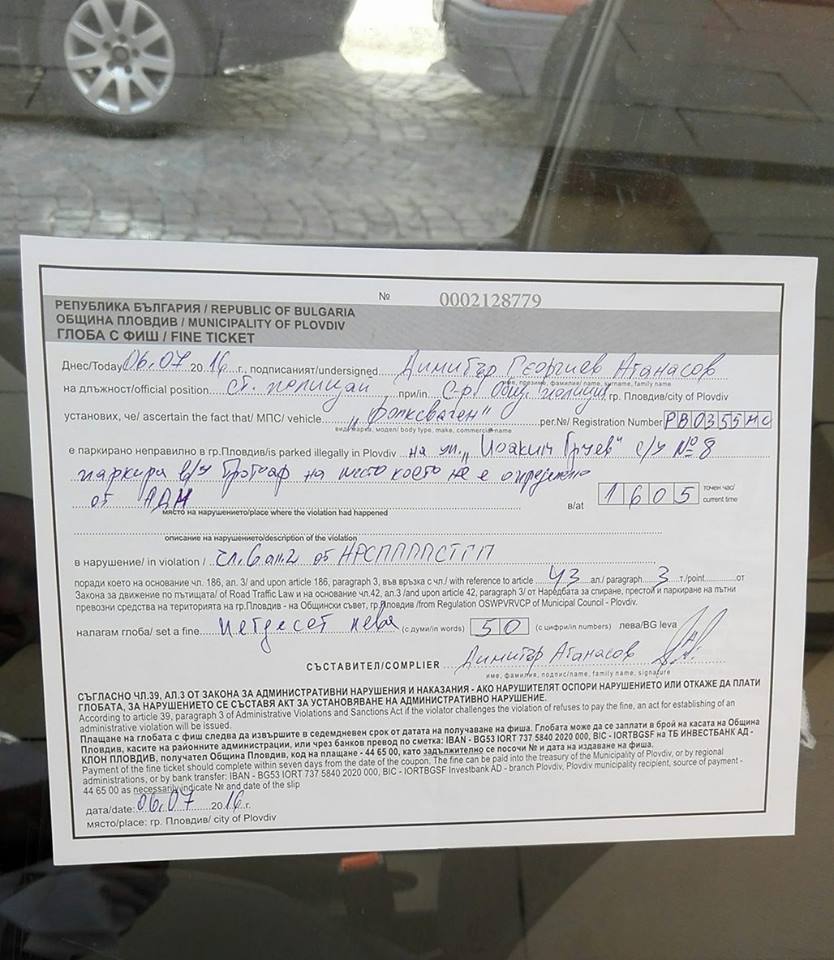 № 0002128779
РЕПУБЛИКА БЪЛГАРИЯ / REPUBLIC OF BULGARIA
ОБЩИНА ПЛОВДИВ / MUNICIPALITY OF PLOVDIV
ГЛОБА С ФИШ / FINE TICKET
Днес/Today 06.07 2016 г., подписаният/undersigned Димитър Георгиев Атанасов
име, презиме, фамилия/ name, surname, family name
на длъжност/official position ст. полицай при/in С-р "Общ. полиция" гр. Пловдив/city of Plovdiv
установих, че/ ascertain the fact that/ МПС/ vehicle "Фолксваген" рег.№/ Registration Number РВ0355МС
вид, марка, модел/ body type, make, commercial name
е паркирано неправилно в гр.Пловдив/is parked illegally in Plovdiv на ул. "Йоаким Груев" с/у №8
паркира в/у тротоар на место което не е определено
от АДН в/at 1605 точен час/ current time
място на нарушението/place where the violation had happened
описание на нарушението/description of the violation
в нарушение/ in violation / чл. 6 ал. 2 от НРСППППСТГП
поради което на основание чл. 186, ал. 3/ and upon article 186, paragraph 3, във връзка с чл./ with reference to article 43 ал./ paragraph 3 т./point от
Закона за движение по пътищата/ of Road Traffic Law и на основание чл.42, ал.3 / and upon article 42, paragraph 3/ от Наредбата за спиране, престой и паркиране на пътни
превозни средства на територията на гр.Пловдив - на Общински съвет, гр.Пловдив /from Regulation OSWPVRVCP of Municipal Council - Plovdiv.
налагам глоба/ set a fine Петдесет лева (с думи/in words) 50 (с цифри/in numbers) лева/BG leva
СЪСТАВИТЕЛ/COMPLIER Димитър Атанасов
име, фамилия, подпис/name, family name, signature
СЪГЛАСНО ЧЛ.39, АЛ.3 ОТ ЗАКОНА ЗА АДМИНИСТРАТИВНИ НАРУШЕНИЯ И НАКАЗАНИЯ - АКО НАРУШИТЕЛЯТ ОСПОРИ НАРУШЕНИЕТО ИЛИ ОТКАЖЕ ДА ПЛАТИ
ГЛОБАТА, ЗА НАРУШЕНИЕТО СЕ СЪСТАВЯ АКТ ЗА УСТАНОВЯВАНЕ НА АДМИНИСТРАТИВНО НАРУШЕНИЕ.
According to article 39, paragraph 3 of Administrative Violations and Sanctions Act if the violator challenges the violation of refuses to pay the fine, an act for establishing of an
administrative violation will be issued.
Плащане на глобата с фиш следва да извършите в седемдневен срок от датата на получаване на фиша. Глобата може да се заплати в брой на касата на Община
Пловдив, касите на районните администрации, или чрез банков превод по сметка: IBAN - BG53 IORT 737 5840 2020 000, BIC - IORTBGSF НА ТБ ИНВЕСТБАНК АД -
КЛОН ПЛОВДИВ, получател Община Пловдив, код на плащане - 44 65 00, като задължително се посочи № и дата на издаване на фиша.
Payment of the fine ticket should complete within seven days from the date of the coupon. The fine can be paid into the treasury of the Municipality of Plovdiv, or by regional
administrations, or by bank transfer: IBAN - BG53 IORT 737 5840 2020 000, BIC - IORTBGSF Investbank AD - branch Plovdiv, Plovdiv municipality recipient, source of payment -
44 65 00 as necessarily indicate № and date of the slip
дата/date: 06.07 2016 г.
място/място: гр. Пловдив/ city of Plovdiv